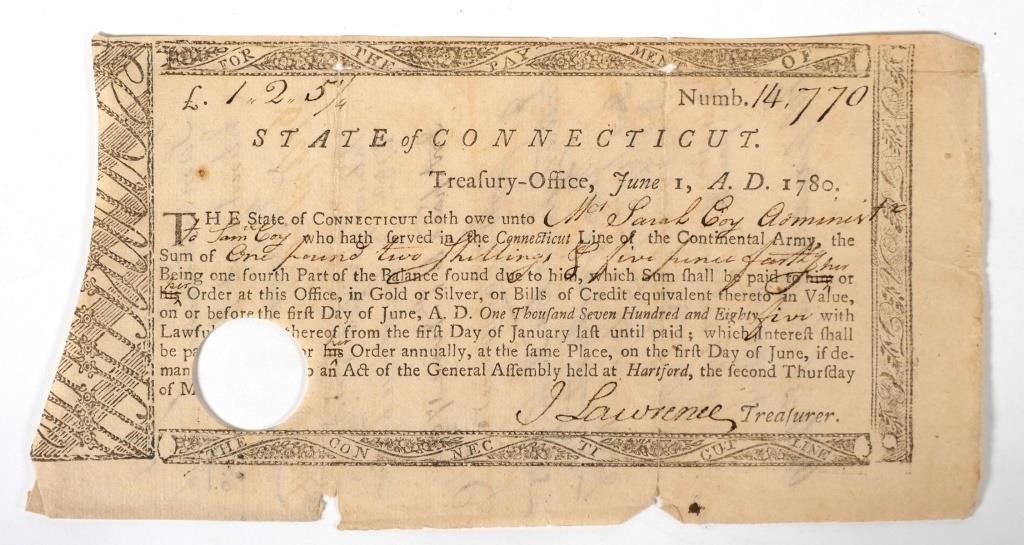 FOR THE PAY MEN OF
£. 1 " 2 " 5 1/4 Numb. 14,770
STATE of CONNECTICUT.
Treasury-Office, June 1, A. D. 1780.
THE State of CONNECTICUT doth owe unto Mrs Sarah Coy Administrx
to Samll Coy who hath ſerved in the Connecticut Line of the Continental Army, the
Sum of One pound two Shillings & five pence farthg
Being one fourth Part of the Balance found due to him, which Sum ſhall be paid to him her or
his her Order at this Office, in Gold or Silver, or Bills of Credit equivalent thereto in Value,
on or before the firſt Day of June, A. D. One Thouſand Seven Hundred and Eighty five with
Lawful thereof from the firſt Day of January laſt until paid; which Intereſt ſhall
be pa or his her Order annually, at the ſame Place, on the firſt Day of June, if de-
man to an Act of the General Aſſembly held at Hartford, the ſecond Thurſday
of M
J Lawrence Treaſurer.
THE CON NEC TI CUT LINE